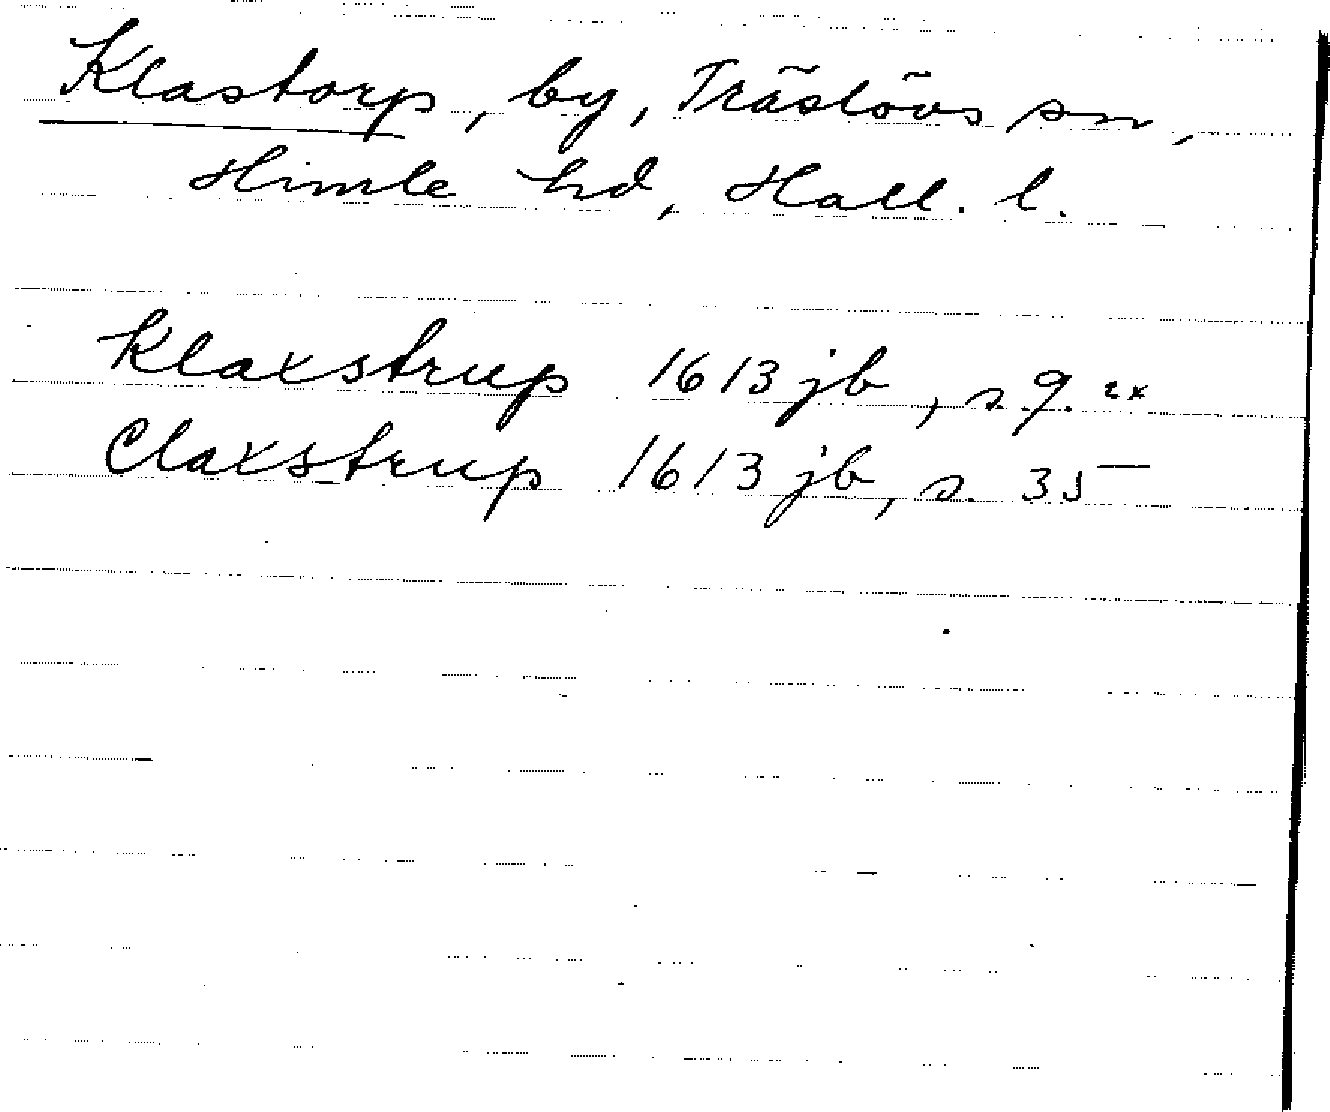 Klastorp, by, Träslövs sn,
Himle hd, Hall. l.
Klaxstrup 1613 jb, s. 9. 2x
Claxstrup 1613 jb, s. 35